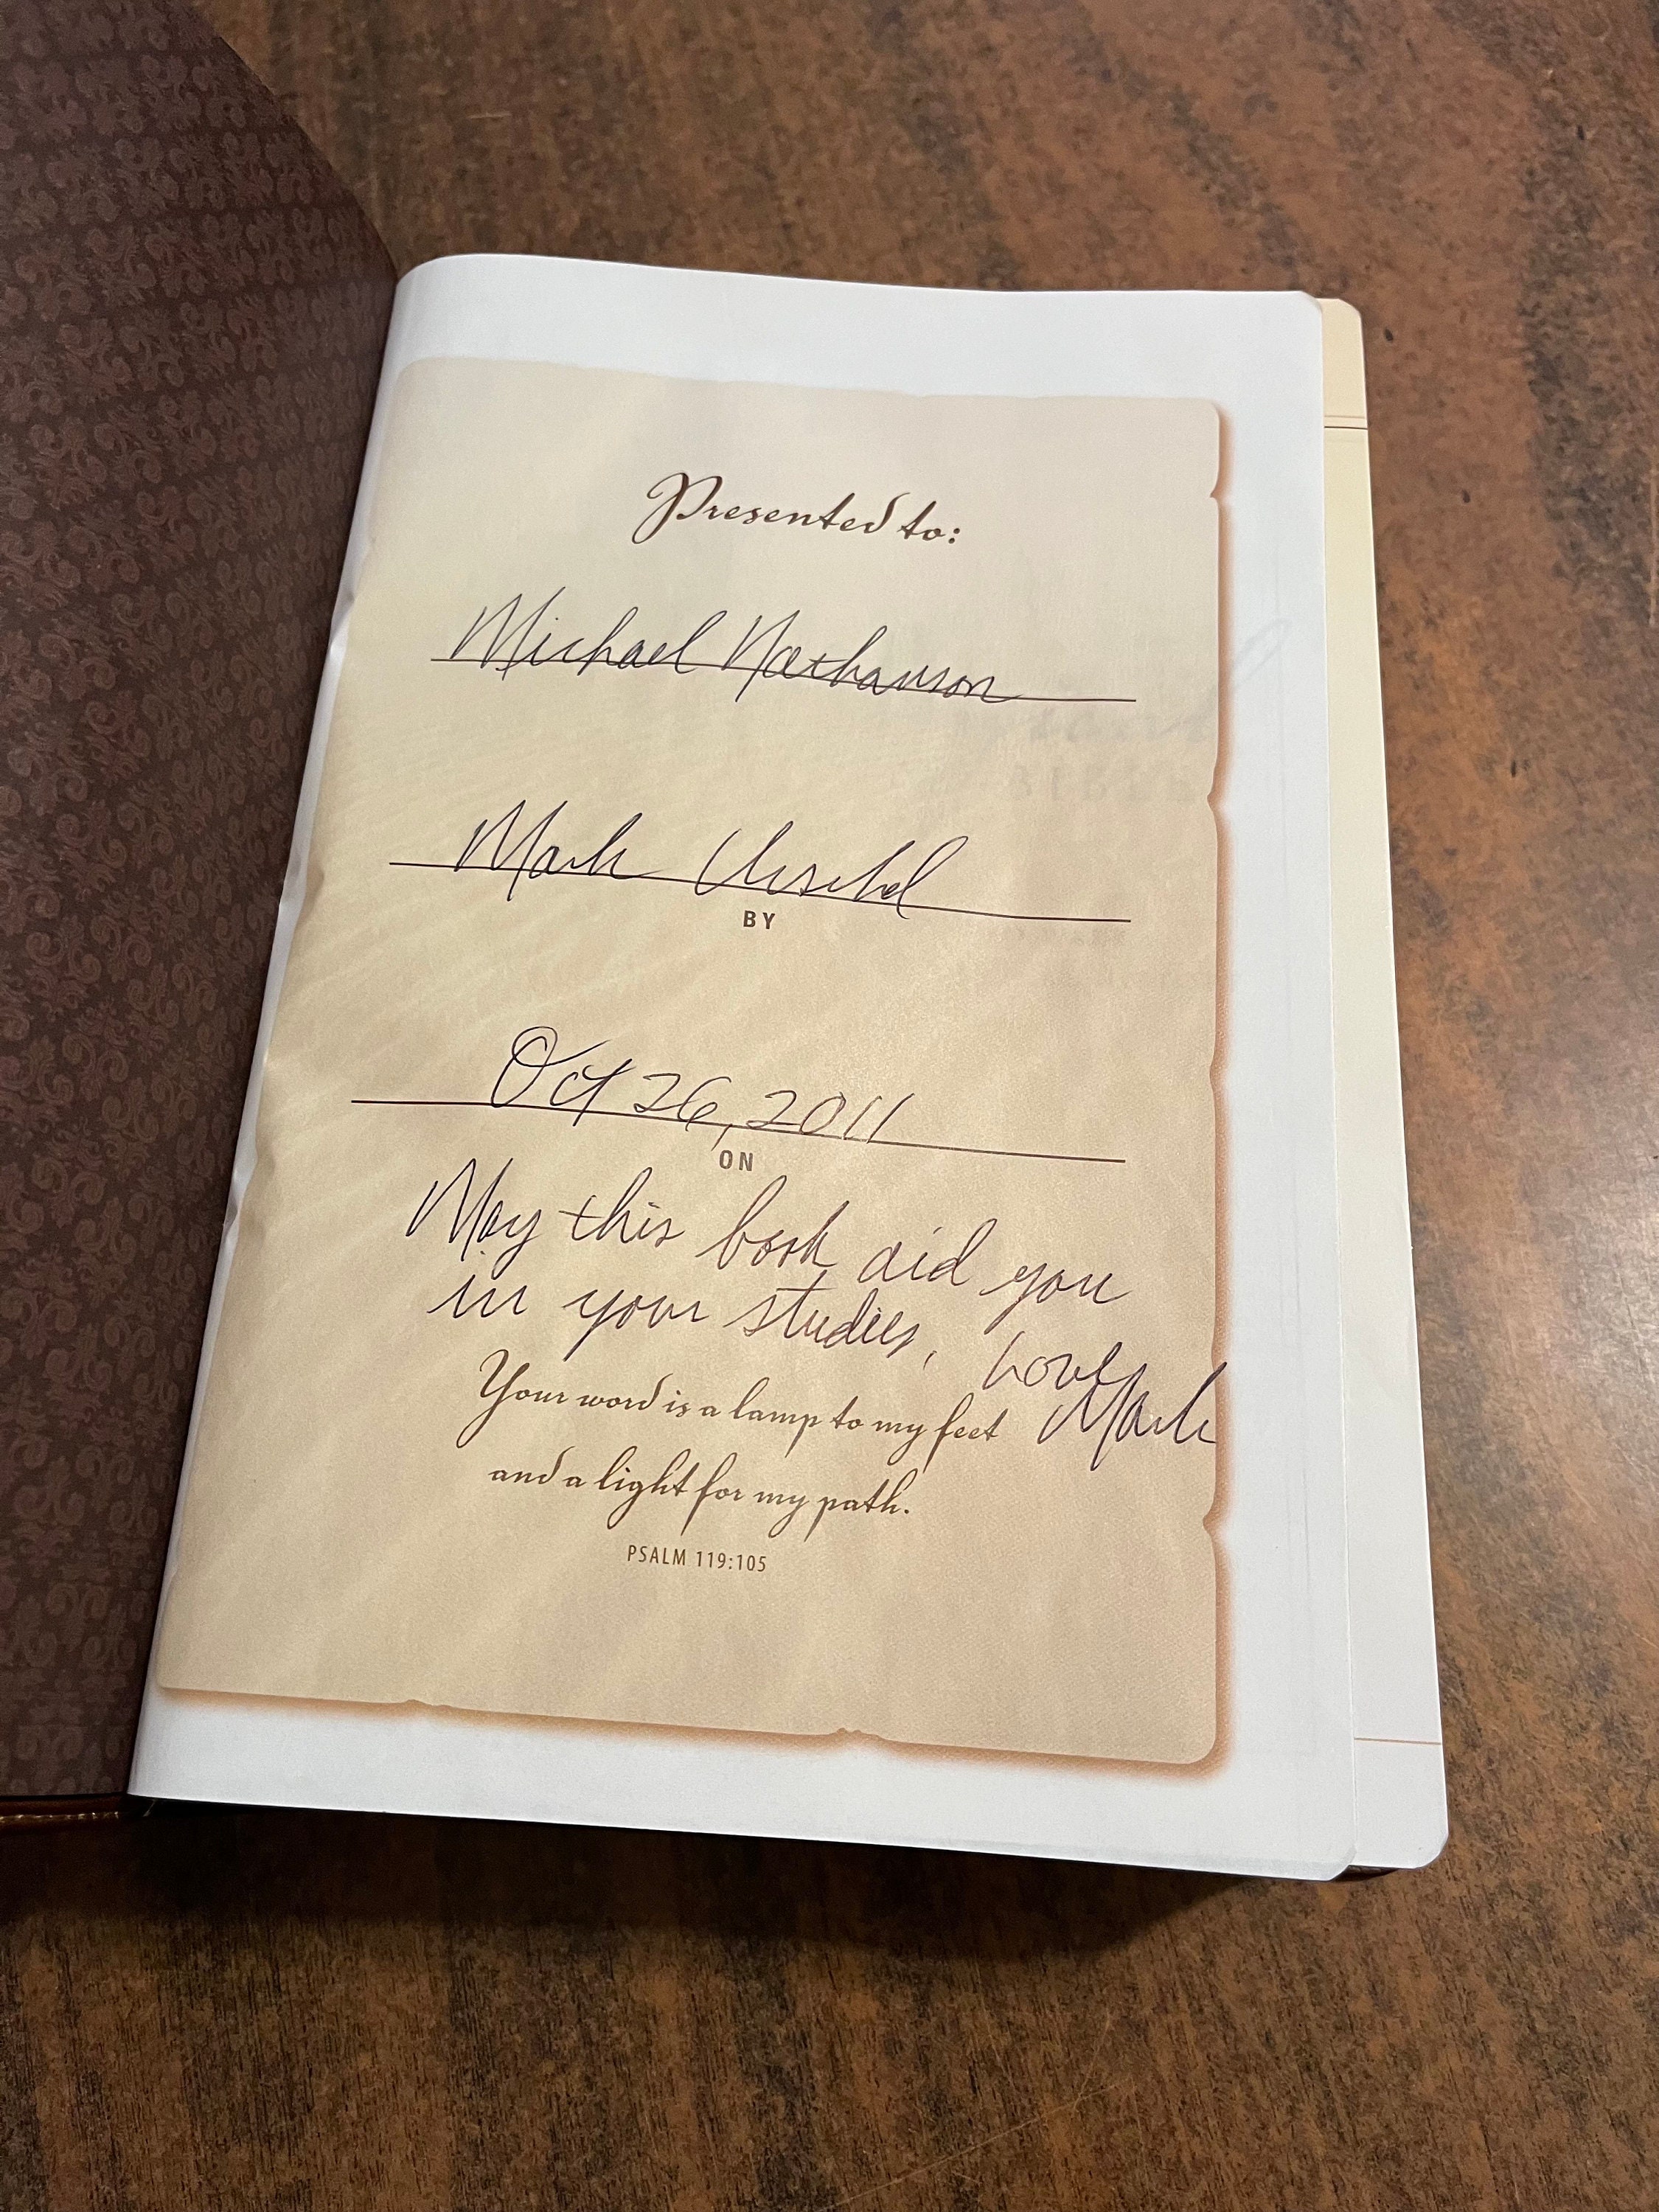 Presented to:
Michael Nathanson
Mark
BY
Oct 26, 2011
ON
May this book aid you
in your studies, Love,
Mark
Your word is a lamp to my feet
and a light for my path.
PSALM 119:105